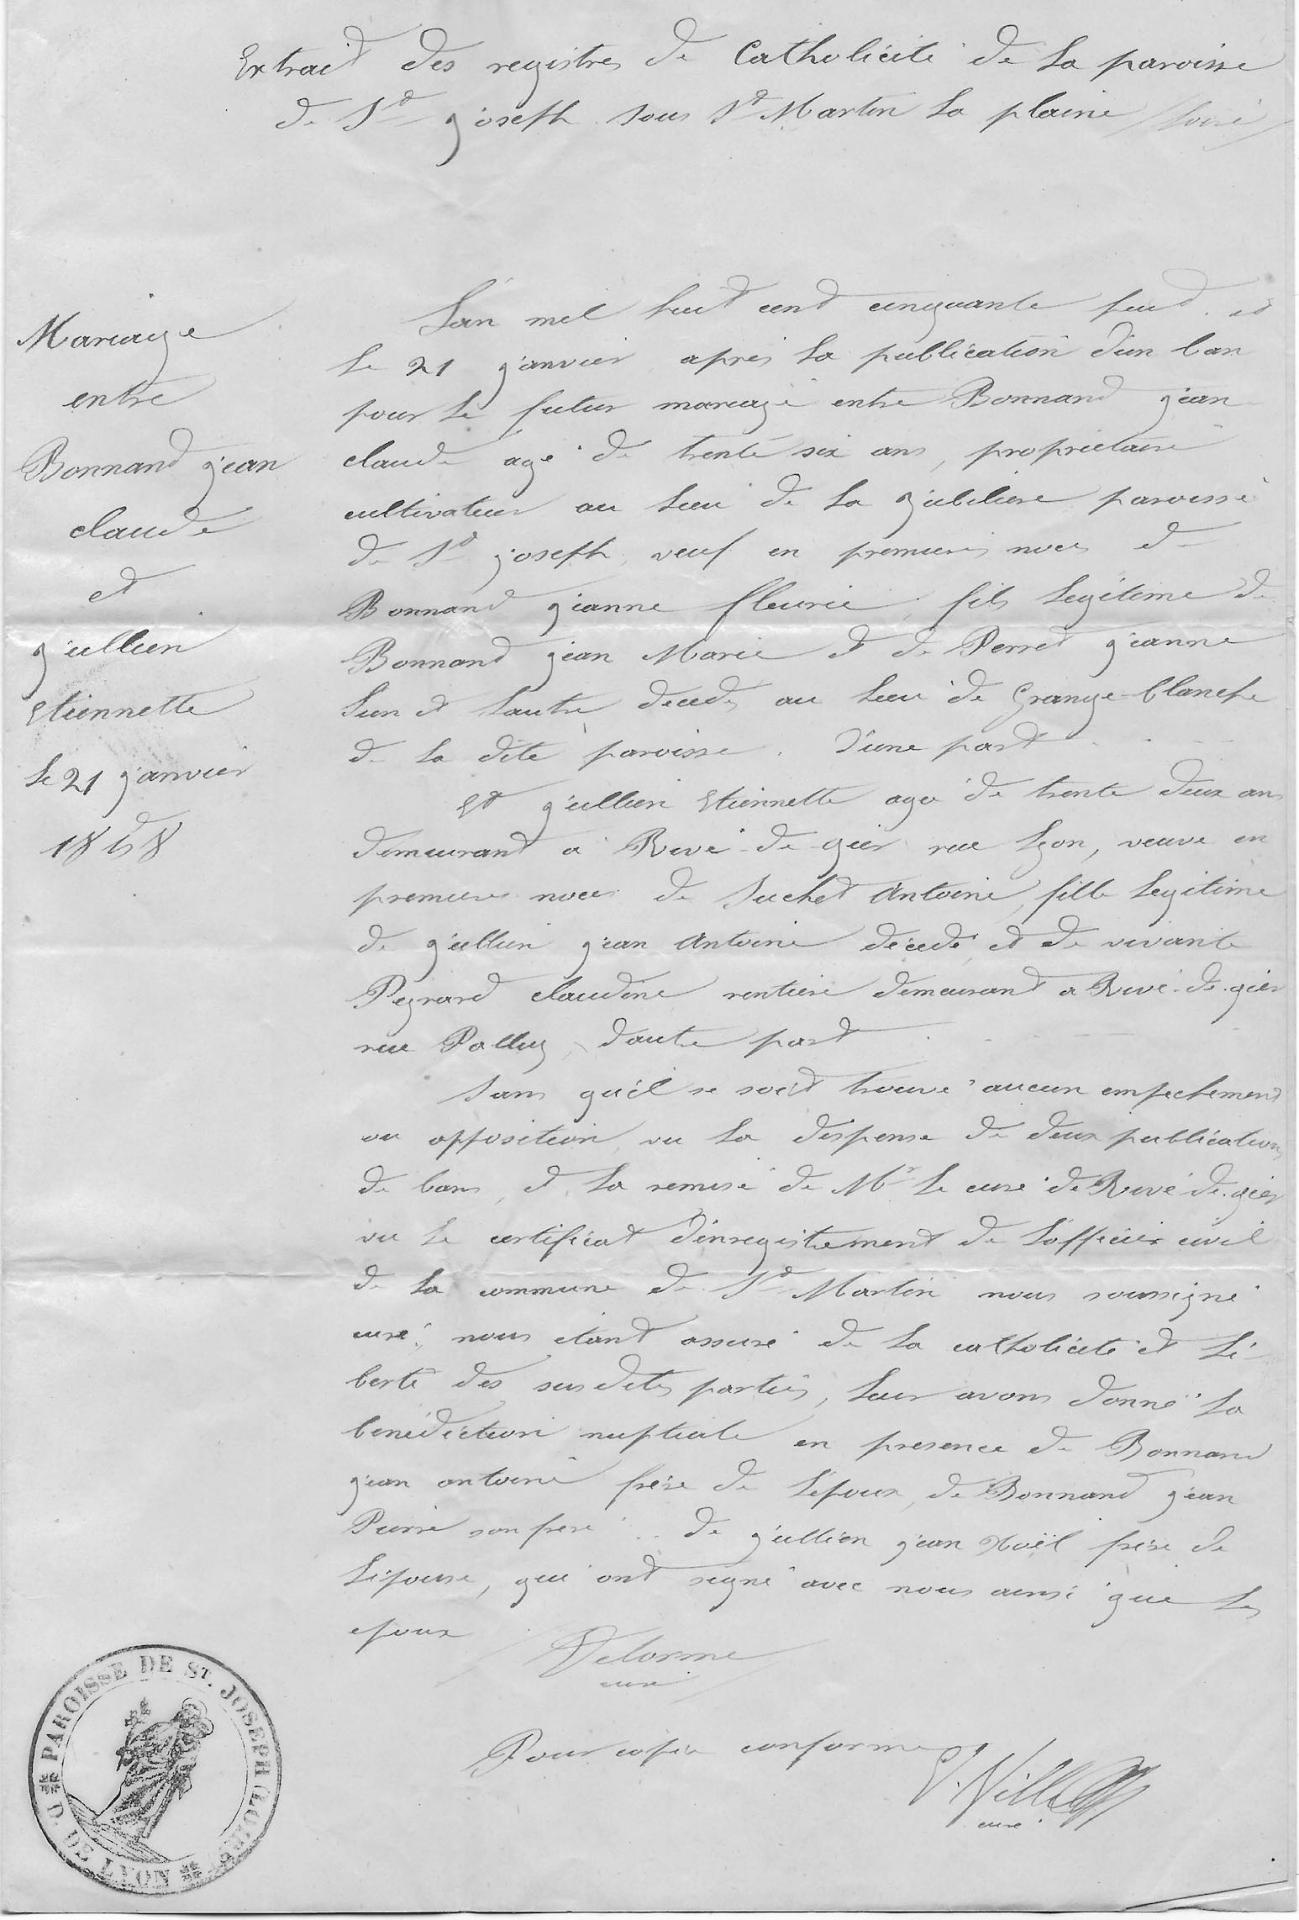 Extrait des registres de Catholicité de la paroisse
de St joseph sous St Martin la plaine (Loire)
Mariage
entre
Bonnand jean
claude
et
jullien
Etiennette
le 21 janvier
1858
L'an mil huit cent cinquante huit et
le 21 janvier après la publication d'un ban
pour le futur mariage entre Bonnand jean
claude agé de trente six ans, propriétaire
cultivateur au lieu de la jubiliere paroisse
de St joseph, veuf en premieres noces de
Bonnand jeanne fleurie, fils legitime de
Bonnand jean Marie et de Perret jeanne
l'un et l'autre décédés au lieu de Grange-blanche
de la dite paroisse. D'une part
Et jullien Etiennette agée de trente deux ans
demeurant a Rive-de-gier rue Lyon, veuve en
premieres noces de Suchet Antoine, fille legitime
de jullien jean Antoine décédé, et de vivante
Peyrard claudine rentiere demeurant a Rive-de-gier
rue Palluy, d'autre part
Sans qu'il se soit trouvé aucun empechement
ou opposition, vu la dispense de deux publications
de bans, et la remise de Mr le curé de Rive-de-gier
vu le certificat d'enregistrement de l'officier civil
de la commune de St Martin nous soussigné
curé, nous étant assuré de la catholicité et li-
berté des susdites parties, leur avons donné la
bénédiction nuptiale en presence de Bonnand
jean antoine frère de l'époux, de Bonnand jean
Pierre son frere, de jullien jean Noël frère de
l'épouse, qui ont signé avec nous ainsi que les
epoux
Delorme
curé
Pour copie conforme
curé
PAROISSE DE ST. JOSEPH (LOIRE)
D. DE LYON